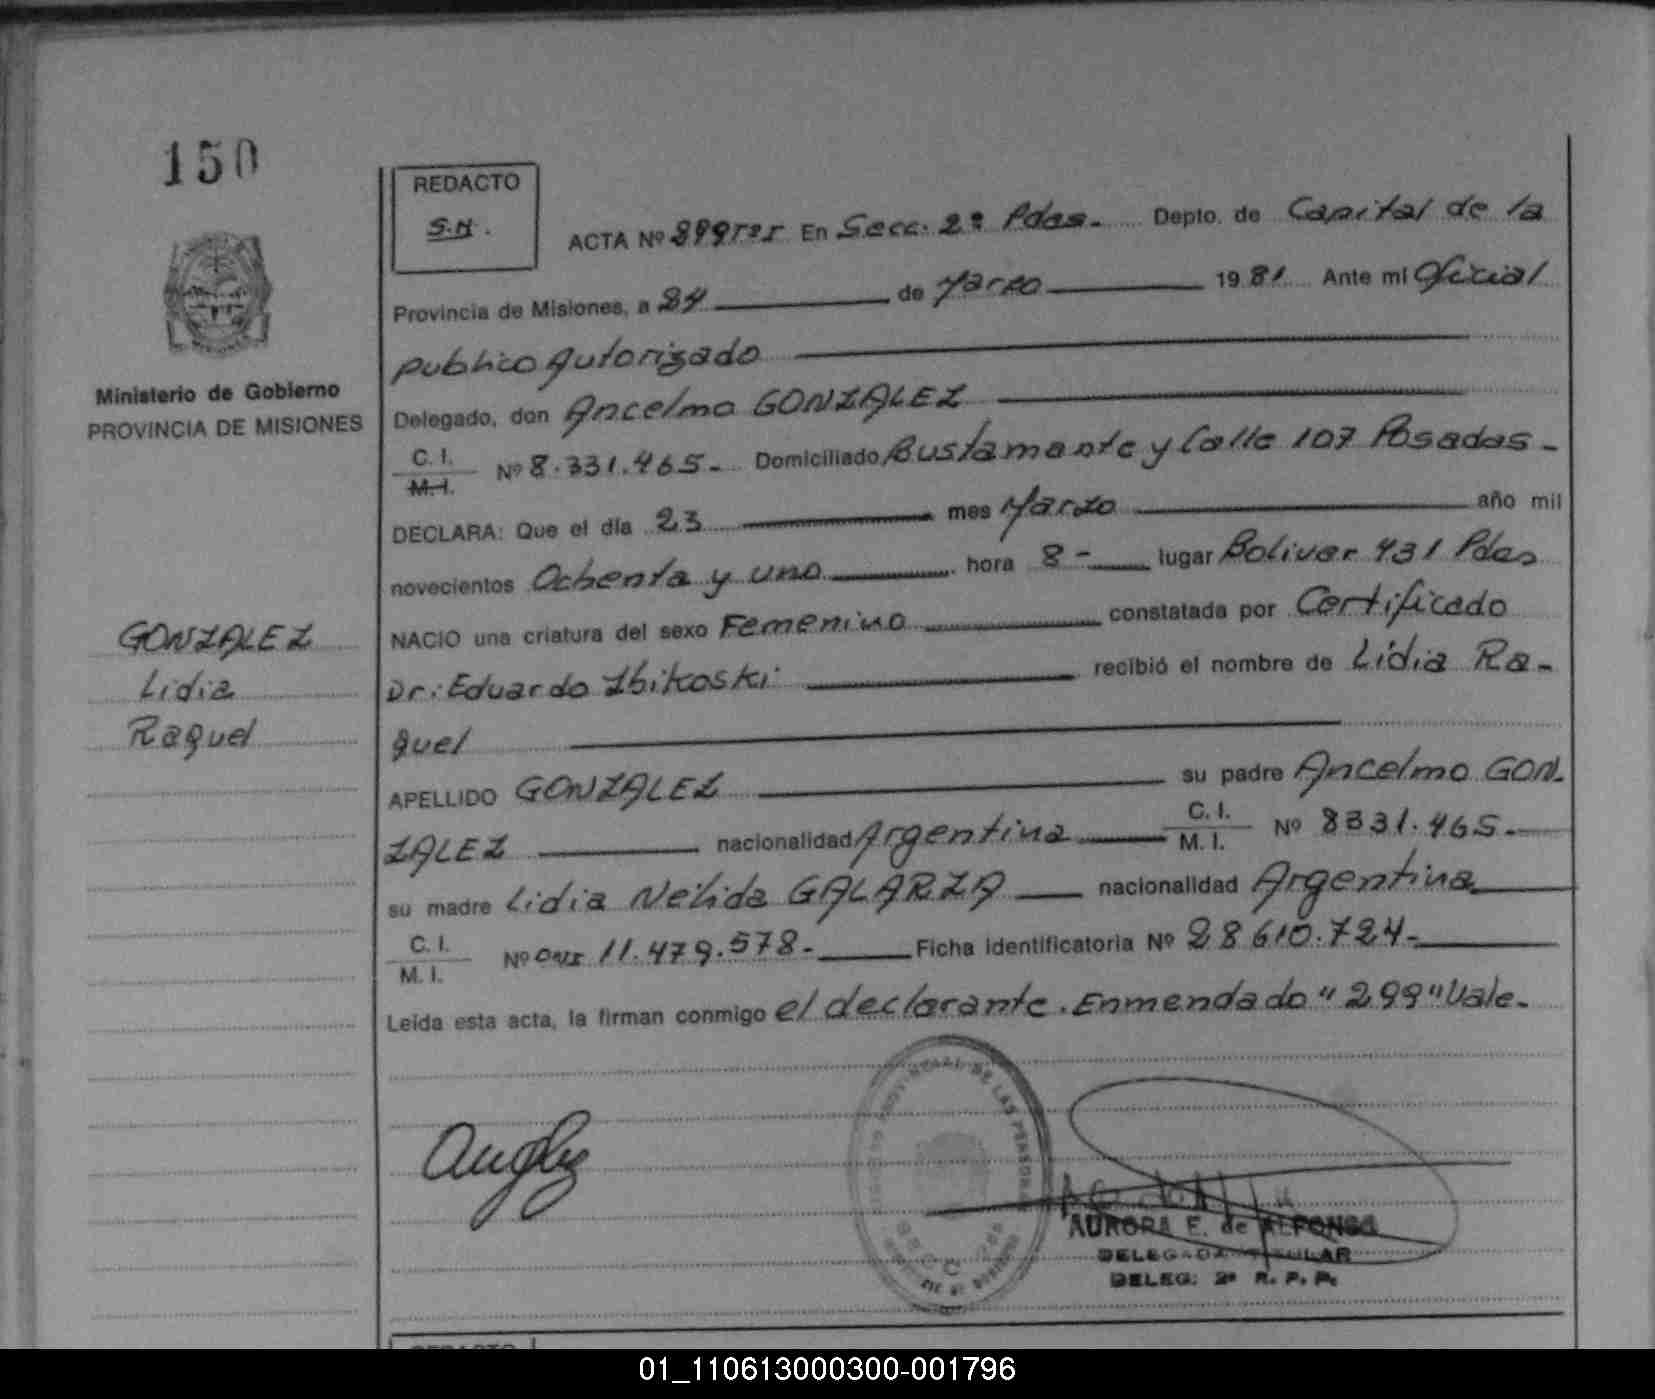 150
REDACTO
S.H.
ACTA Nº 299 En Secc. 2ª Pdas. Depto. de Capital de la
Provincia de Misiones, a 24 de Marzo 1981 Ante mi Oficial
publico Autorizado
Delegado, don Ancelmo GONZALEZ
C. I.
M. I. Nº 8.331.465- Domiciliado Bustamante y Calle 107 Posadas-
DECLARA: Que el día 23 mes Marzo año mil
novecientos Ochenta y uno hora 8- lugar Bolivar 431 Pdas
NACIO una criatura del sexo Femenino constatada por Certificado
Dr: Eduardo Zbikoski recibió el nombre de Lidia Ra-
quel
APELLIDO GONZALEZ su padre Ancelmo GON-
ZALEZ nacionalidad Argentina C. I.
M. I. Nº 8331.465-
su madre Lidia Nélida GALARZA nacionalidad Argentina
C. I.
M. I. Nº 11.479.578- Ficha identificatoria Nº 28610.724-
Leída esta acta, la firman conmigo el declarante. Enmendado "299" Vale-
Ministerio de Gobierno
PROVINCIA DE MISIONES
GONZALEZ
Lidia
Raquel
PROVINCIAL DE LAS PERSONAS
AURORA E. de ALFONSO
DELEGADA TITULAR
DELEG: 2ª R. P. P.
REDACTO
01_110613000300-001796